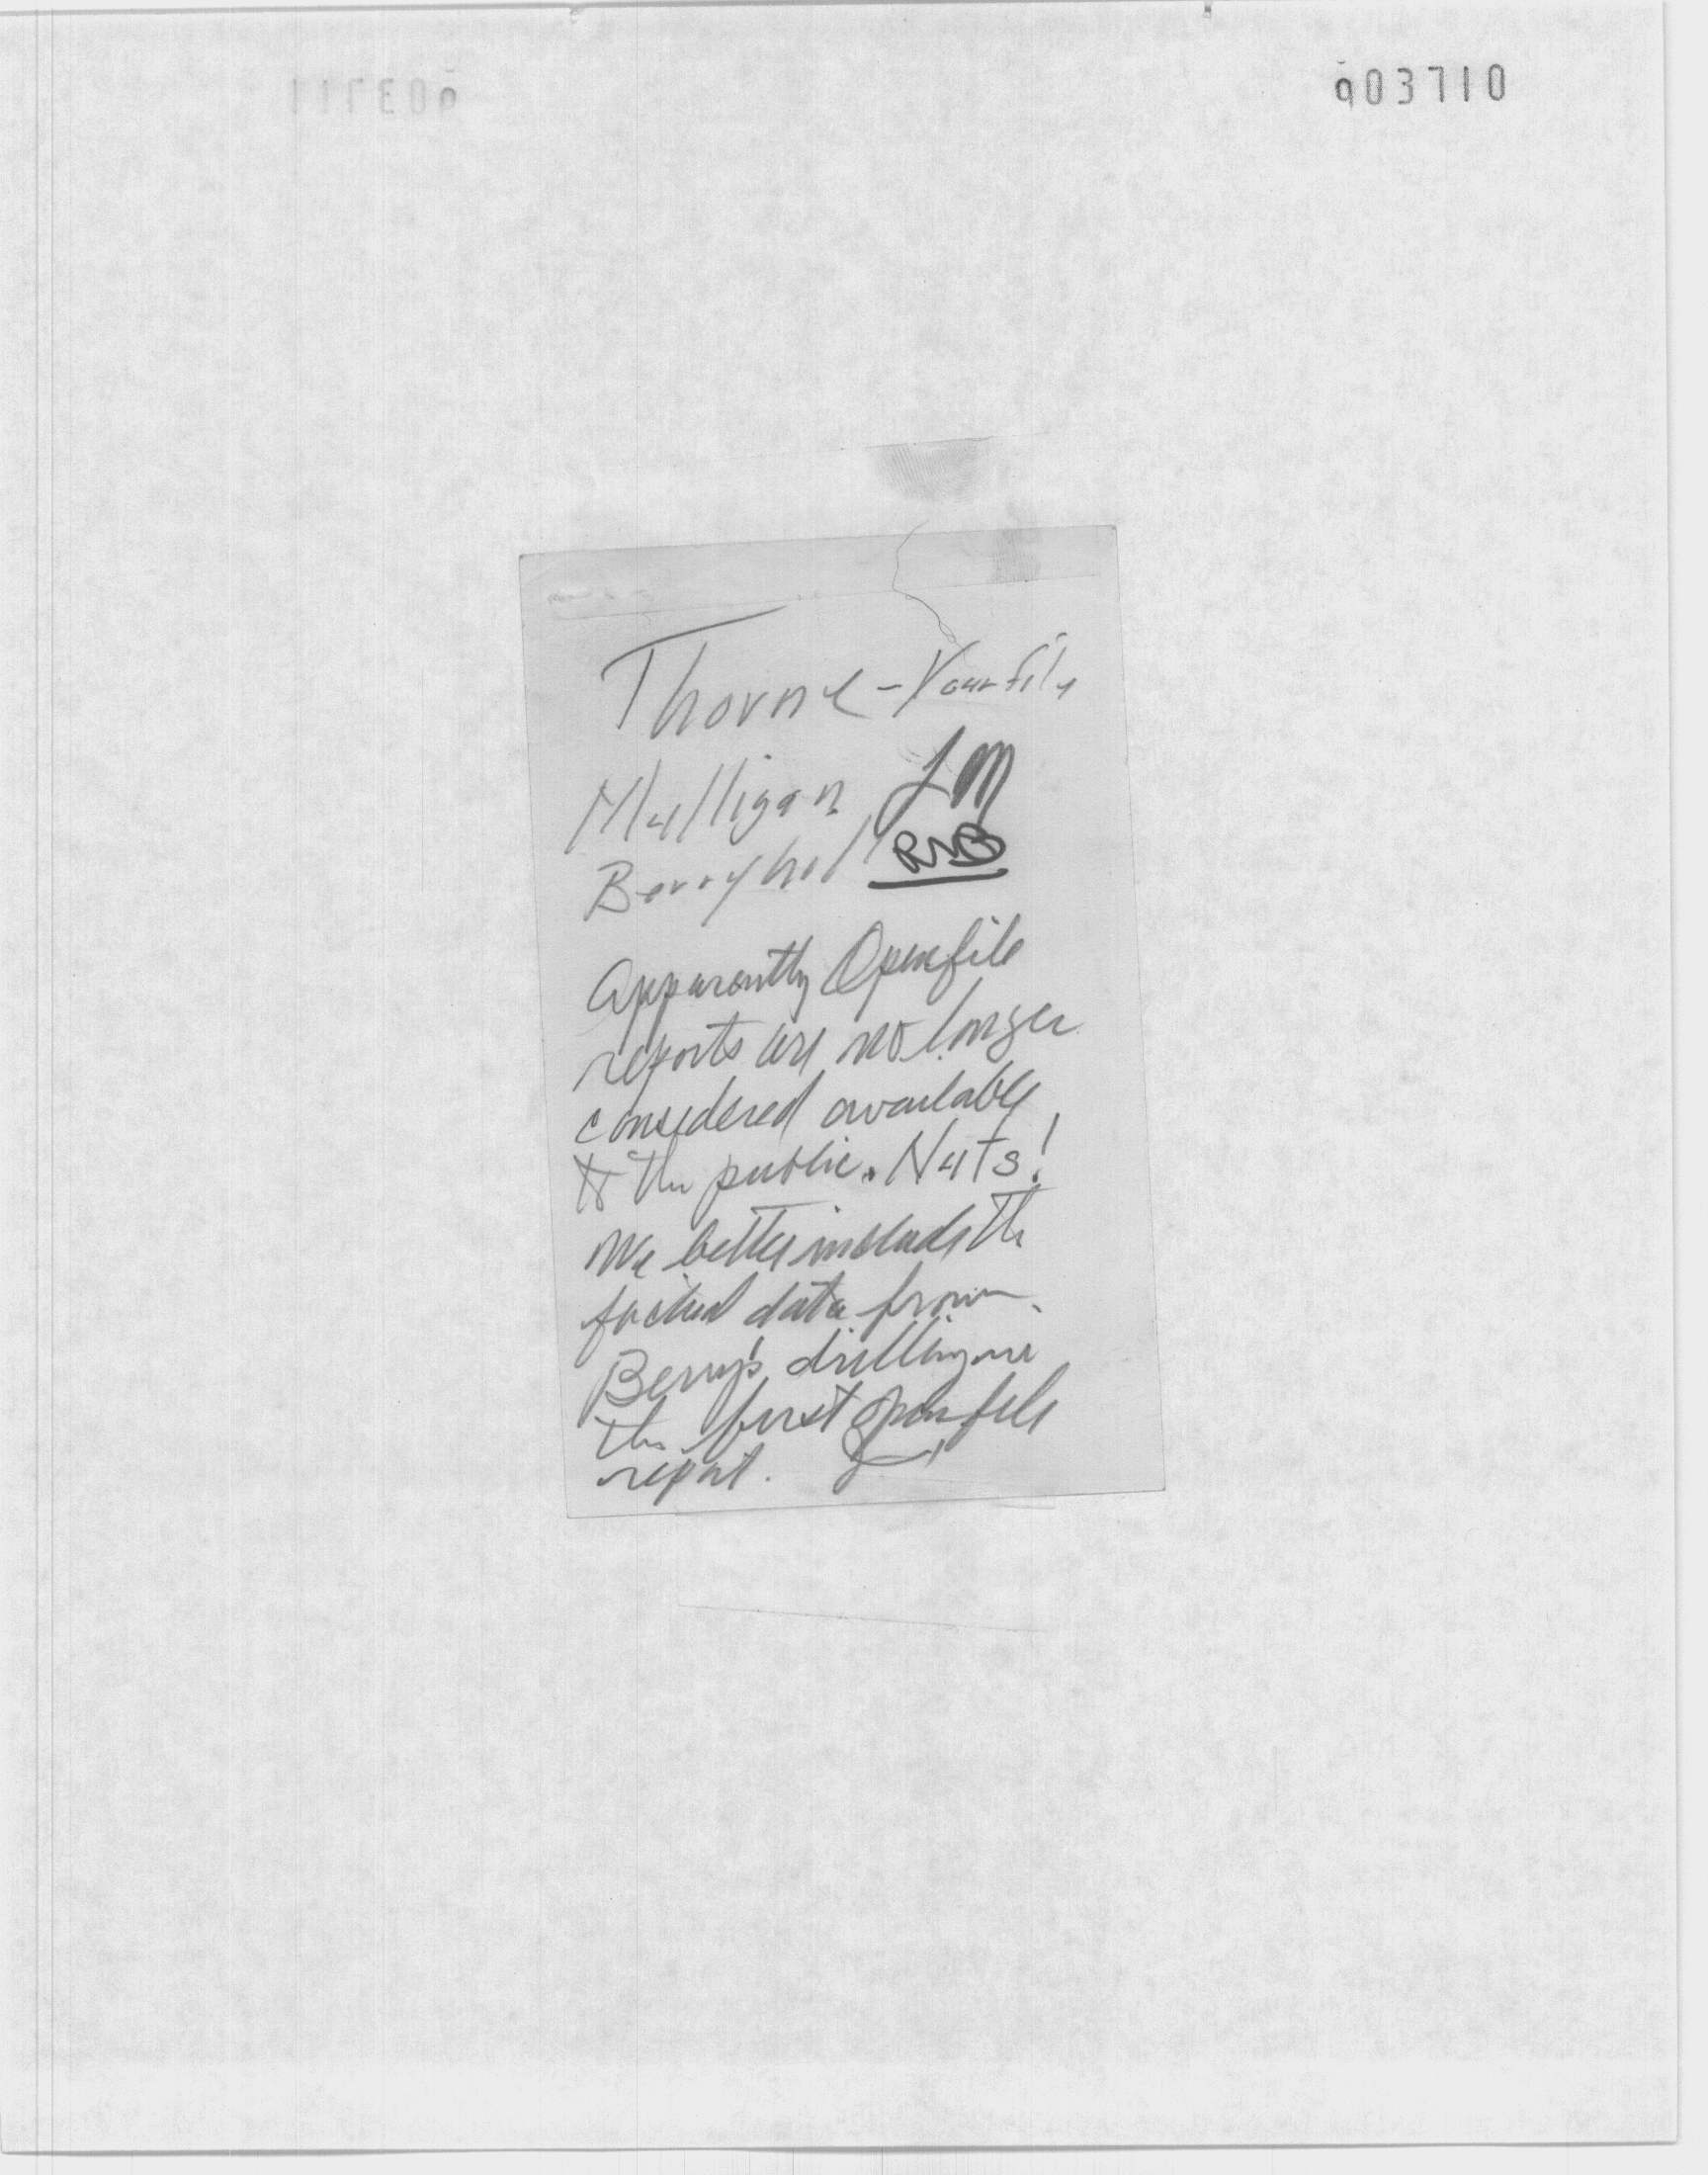 003710
Thorne - Your file
Mulligan JM
Berryhill RNB
Apparently Openfile
reports are no longer
considered available
to the public. Nuts!
We better include the
factual data from
Berry's drilling and
the first open file
report.